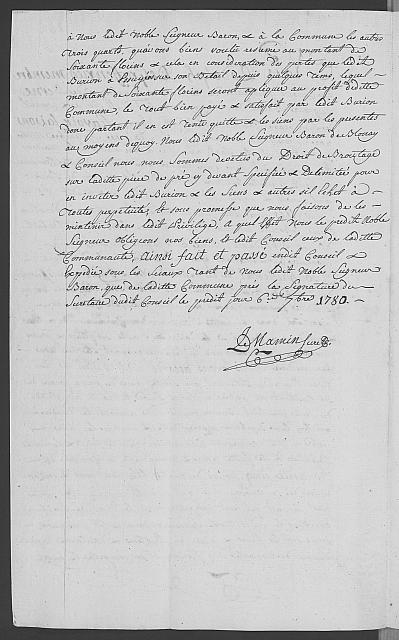 à Nous ledit Noble Seigneur Baron, & à la Commune les autres
trois quarts, que avons bien voulu resumé au montant de
Soixante florins & cela en consideration des pertes que ledit
Burion à sur son Betail depuis quelques tems, lequel
montant de Soixante florins seront appliqué au profit dedite
Commune, le tout bien payé & satisfait par ledit Burion
dont partant il en est tenté quitte & les siens par les presentes
au moyens dequoy, Nous ledit Noble Seigneur Baron de Blonay
& Conseil nous nous Sommes devetus du Droit de Brouttage
sur laditte piece de pré cy devant specifiée & Delimitée pour
en invetir ledit Burion & les Siens & autres sil echet à
toutes perpetuité, & sous promesse que nous faisons de les
maintenir dans ledit Privilege, à quel effet Nous le predit Noble
Seigneur obligeons nos biens, & ledit Conseil ceux de laditte
Communauté, ainsi fait et passé endit Conseil &
Expedié sous les Sceaux tant de Nous ledit Noble Seigneur
Baron, que de laditte Commune près la Signature du
Secretaire dudit Conseil le predit jour 6.e 7bre 1780. –
De Mamin Secret.